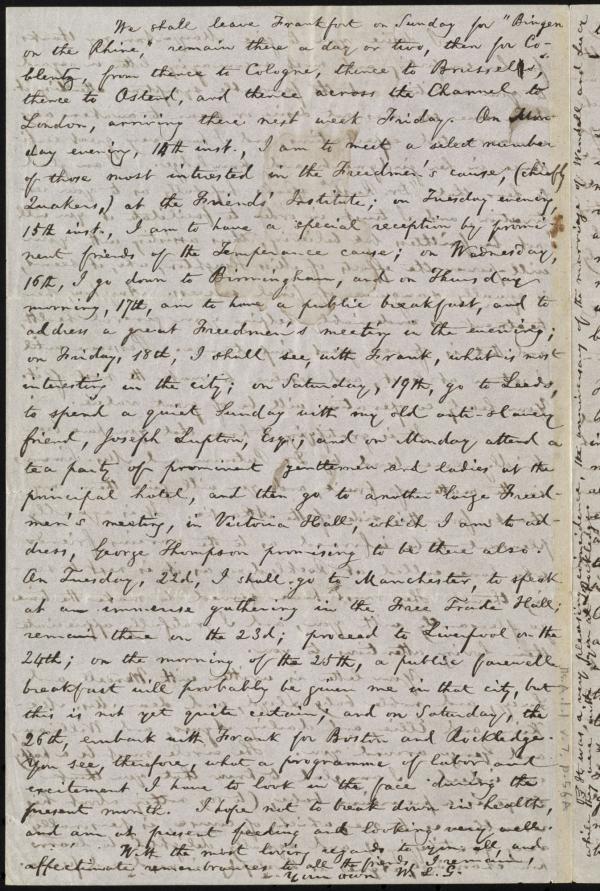 We shall leave Frankfort on Sunday for "Bingen
on the Rhine," remain there a day or two, then for Co-
blentz, from thence to Cologne, thence to Brussells,
thence to Ostend, and thence across the Channel to
London, arriving there next week Friday. On Mon-
day evening, 14th inst., I am to meet a select number
of those most interested in the Freedmen's cause, (chiefly
Quakers,) at the Friends' Institute; on Tuesday evening,
15th inst., I am to have a special reception by promi-
nent friends of the Temperance cause; on Wednesday,
16th, I go down to Birmingham, and on Thursday
morning, 17th, am to have a public breakfast, and to
address a great Freedmen's meeting in the evening;
on Friday, 18th, I shall see with Frank, what is most
interesting in the city; on Saturday, 19th, go to Leeds,
to spend a quiet Sunday with my old anti-slavery
friend, Joseph Lupton, Esq.; and on Monday attend a
tea party of prominent gentlemen and ladies at the
principal hotel, and then go to another large Freed-
men's meeting, in Victoria Hall, which I am to ad-
dress, George Thompson promising to be there also.
On Tuesday, 22d, I shall go to Manchester, to speak
at an immense gathering in the Free Trade Hall;
remain there on the 23d; proceed to Liverpool on the
24th; on the morning of the 25th, a public farewell
breakfast will probably be given me in that city, but
this is not yet quite certain; and on Saturday, the
26th, embark with Frank for Boston and Rockledge.
You see, therefore, what a programme of labor and
excitement I have to look in the face during the
present month. I hope not to break down in health,
and am at present feeding and looking very well.
With the most loving regards to you all, and
affectionate remembrances to all the friends, I remain,
Your own W. L. G.
It was a pleasing coincidence, the anniversary of the marriage of Wendell and Lucy